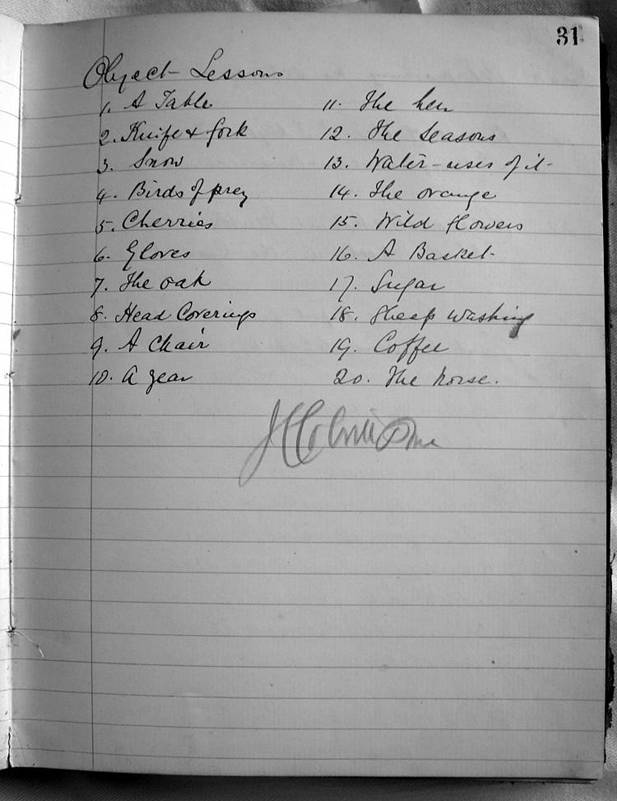 31
Object Lessons
1. A Table
2. Knife & fork
3. Snow
4. Birds of prey
5. Cherries
6. Gloves
7. The oak
8. Head Coverings
9. A Chair
10. A year
11. The hen
12. The Seasons
13. Water - uses of it-
14. The orange
15. Wild flowers
16. A Basket-
17. Sugar
18. Sheep Washing
19. Coffee
20. The horse.